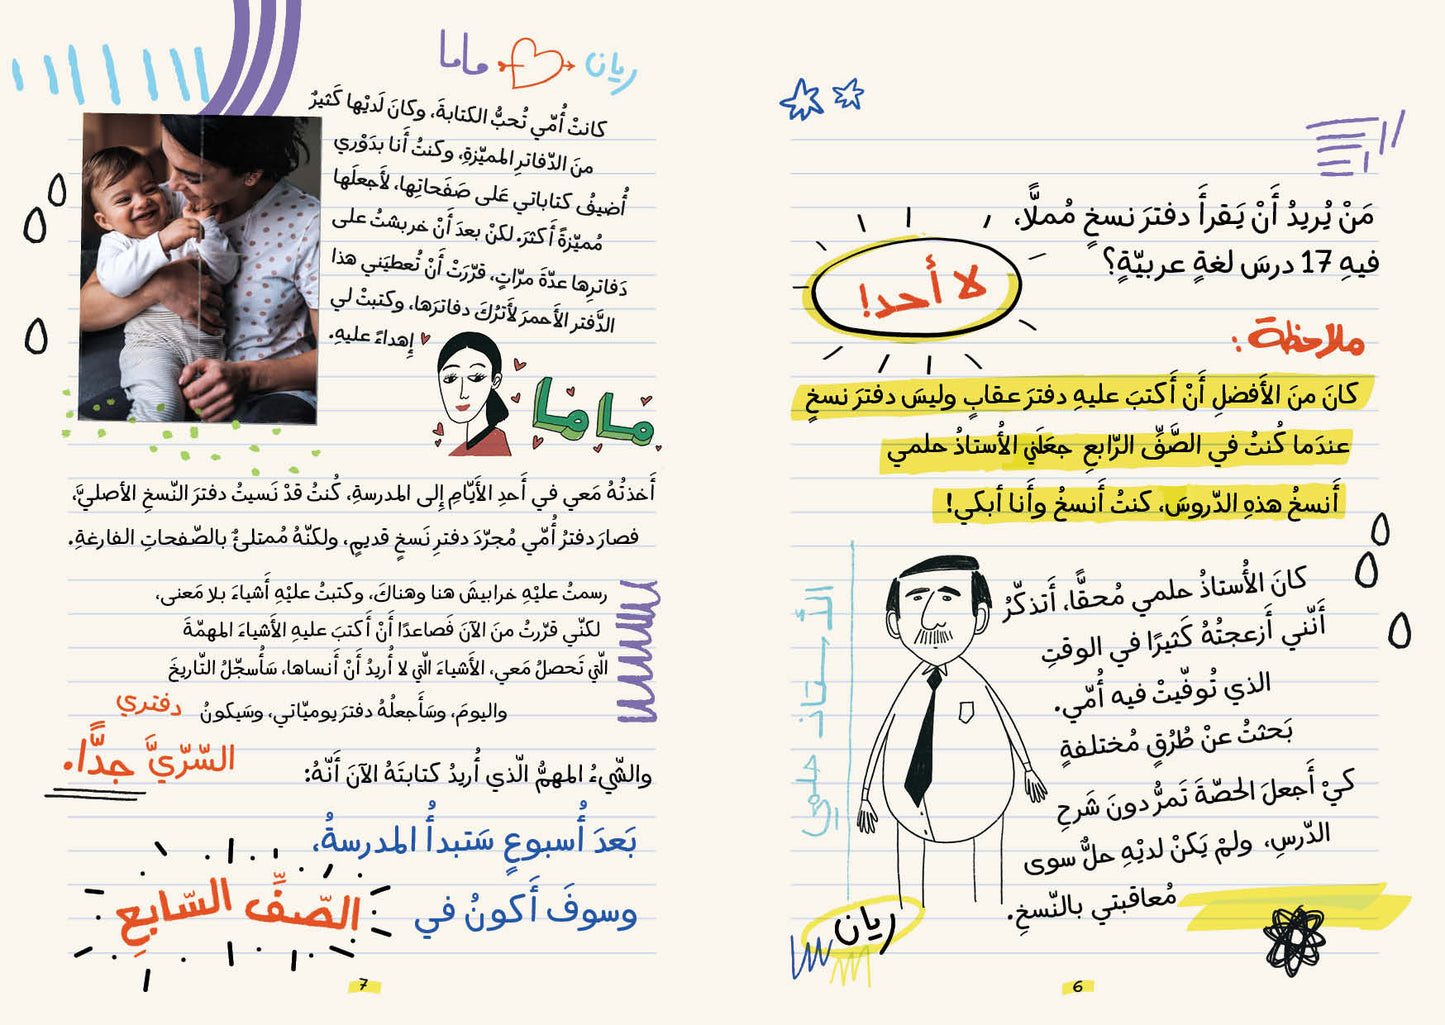 مَنْ يُريدُ أَنْ يَقرأَ دفترَ نسخٍ مُملًّا،
فيهِ 17 درسَ لغةٍ عربيّةٍ؟
لا أحد!
ملاحظة:
كانَ منَ الأَفضلِ أَنْ أَكتبَ عليهِ دفترَ عقابٍ وليسَ دفترَ نسخٍ
عندَما كُنتُ في الصَّفِّ الرّابعِ جعَلَني الأُستاذُ حلمي
أَنسخُ هذهِ الدّروسَ، كنتُ أَنسخُ وأَنا أبكي!
كانَ الأُستاذُ حلمي مُحقًّا، أَتذكّرُ
أَنّني أَزعجتُهُ كَثيرًا في الوقتِ
الذي تُوفّيتْ فيه أُمّي.
بَحثتُ عنْ طُرُقٍ مُختلفةٍ
كيْ أَجعلَ الحصّةَ تَمرُّ دونَ شَرحِ
الدّرسِ، ولمْ يَكنْ لديْهِ حلٌّ سوى
مُعاقبتي بالنّسخِ.
الأستاذ حلمي
ريان
6
ريان ماما
كانتْ أُمّي تُحبُّ الكتابةَ، وكانَ لَديْها كَثيرٌ
منَ الدّفاترِ المميّزةِ، وكنتُ أَنا بدَوْري
أُضيفُ كتاباتي عَلى صَفَحاتِها، لأَجعلَها
مُميّزةً أَكثرَ. لكنْ بعدَ أَنْ خربشتُ على
دَفاترِها عدّةَ مرّاتٍ، قرّرَتْ أَنْ تُعطيَني هذا
الدَّفتر الأَحمرَ لأَترُكَ دفاترَها، وكتبتْ لي
إهداءً عليهِ.
ماما
أَخذتُهُ مَعي في أَحدِ الأَيّامِ إِلى المدرسةِ، كُنتُ قدْ نَسيتُ دفترَ النّسخِ الأصليَّ،
فصارَ دفترُ أُمّي مُجرّدَ دفترِ نَسخٍ قديمٍ، ولكنّهُ مُمتلئٌ بالصّفحاتِ الفارغةِ.
رسمتُ عليْهِ خرابيشَ هنا وهناكَ، وكتبتُ عليْهِ أَشياءَ بلا مَعنى،
لكنّي قرّرتُ منَ الآنَ فَصاعدًا أَنْ أَكتبَ عليهِ الأَشياءَ المهمّةَ
الّتي تَحصلُ مَعي، الأَشياءَ الّتي لا أُريدُ أَنْ أَنساها، سَأُسجّلُ التّاريخَ
واليومَ، وسَأَجعلُهُ دفترَ يوميّاتي، وسَيكونُ دفتري
السّرّيَّ جدًّا.
والشّيءُ المهمُّ الّذي أُريدُ كتابتَهُ الآنَ أَنّهُ:
بَعدَ أُسبوعٍ سَتبدأُ المدرسةُ،
وسوفَ أَكونُ في الصّفِّ السّابعِ
7